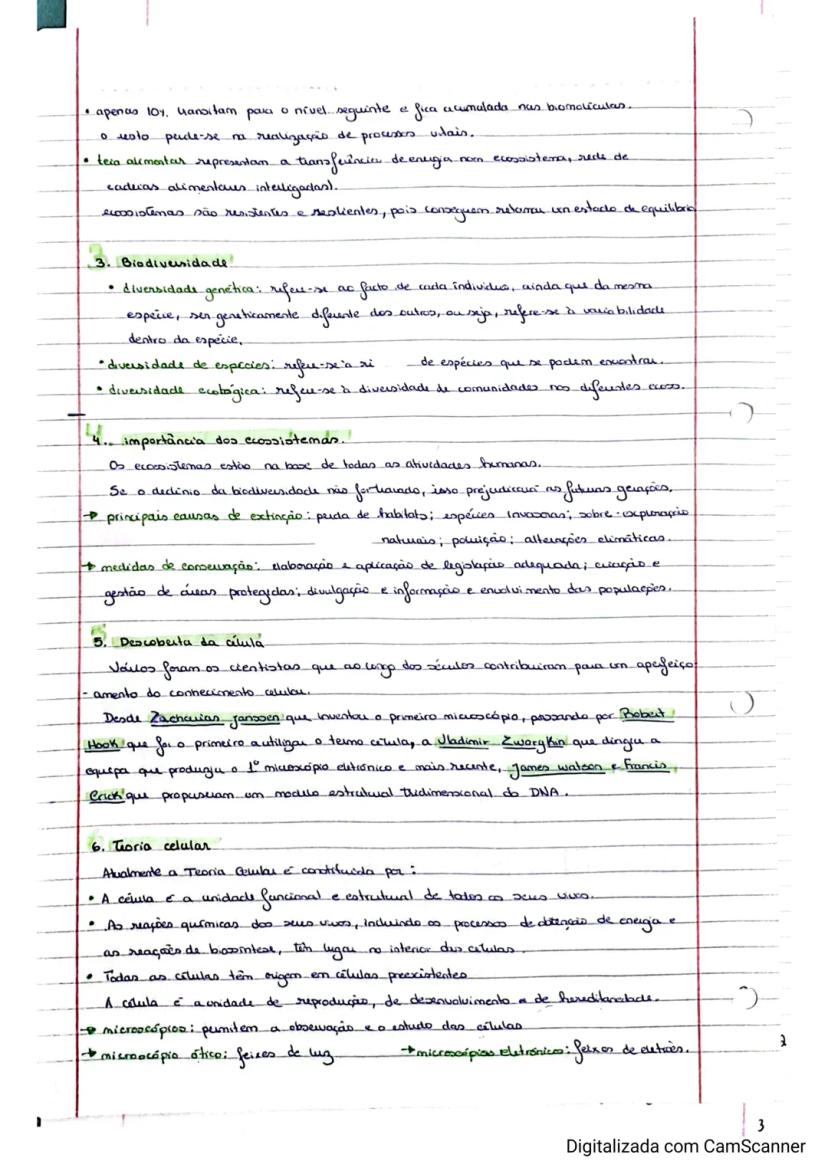 • apenas 10%. transitam para o nível seguinte e fica acumulada nas biomoléculas.
o resto perde-se na realização de processos vitais.
• teia alimentar representam a transferência de energia num ecossistema, rede de
cadeias alimentares interligadas).
ecossistemas são resistentes e resilientes, pois conseguem retomar um estado de equilíbrio
3. Biodiversidade
• diversidade genética: refere-se ao facto de cada indivíduo, ainda que da mesma
espécie, ser geneticamente diferente dos outros, ou seja, refere-se à variabilidade
dentro da espécie.
• diversidade de espécies: refere-se à ri de espécies que se podem encontrar.
• diversidade ecológica: refere-se à diversidade de comunidades nos diferentes ecoss.
4. importância dos ecossistemas.
Os ecossistemas estão na base de todas as atividades humanas.
Se o declínio da biodiversidade não for travado, isso prejudicará as futuras gerações.
→ principais causas de extinção: perda de habitats; espécies invasoras; sobre-exploração
naturais; poluição; alterações climáticas.
→ medidas de conservação: elaboração e aplicação de legislação adequada; criação e
gestão de áreas protegidas; divulgação e informação e envolvimento das populações.
5. Descoberta da célula
Vários foram os cientistas que ao longo dos séculos contribuíram para um aperfeiço
-amento do conhecimento celular.
Desde Zacharias Janssen que inventou o primeiro microscópio, passando por Robert
Hook que foi o primeiro a utilizar o termo célula, a Vladimir Zworykin que dirigiu a
equipa que produziu o 1º microscópio eletrónico e mais recente, James Watson e Francis
Crick que propuseram um modelo estrutural tridimensional do DNA.
6. Teoria celular
Atualmente a Teoria Celular é constituída por:
• A célula é a unidade funcional e estrutural de todos os seres vivos.
• As reações químicas dos seres vivos, incluindo os processos de obtenção de energia e
as reações de biossíntese, têm lugar no interior das células.
• Todas as células têm origem em células preexistentes
A célula é a unidade de reprodução, de desenvolvimento e de hereditariedade.
→ microscópios: permitem a observação e o estudo das células
→ microscópio ótico: feixes de luz → microscópios eletrónico: feixes de eletrões.
3
Digitalizada com CamScanner